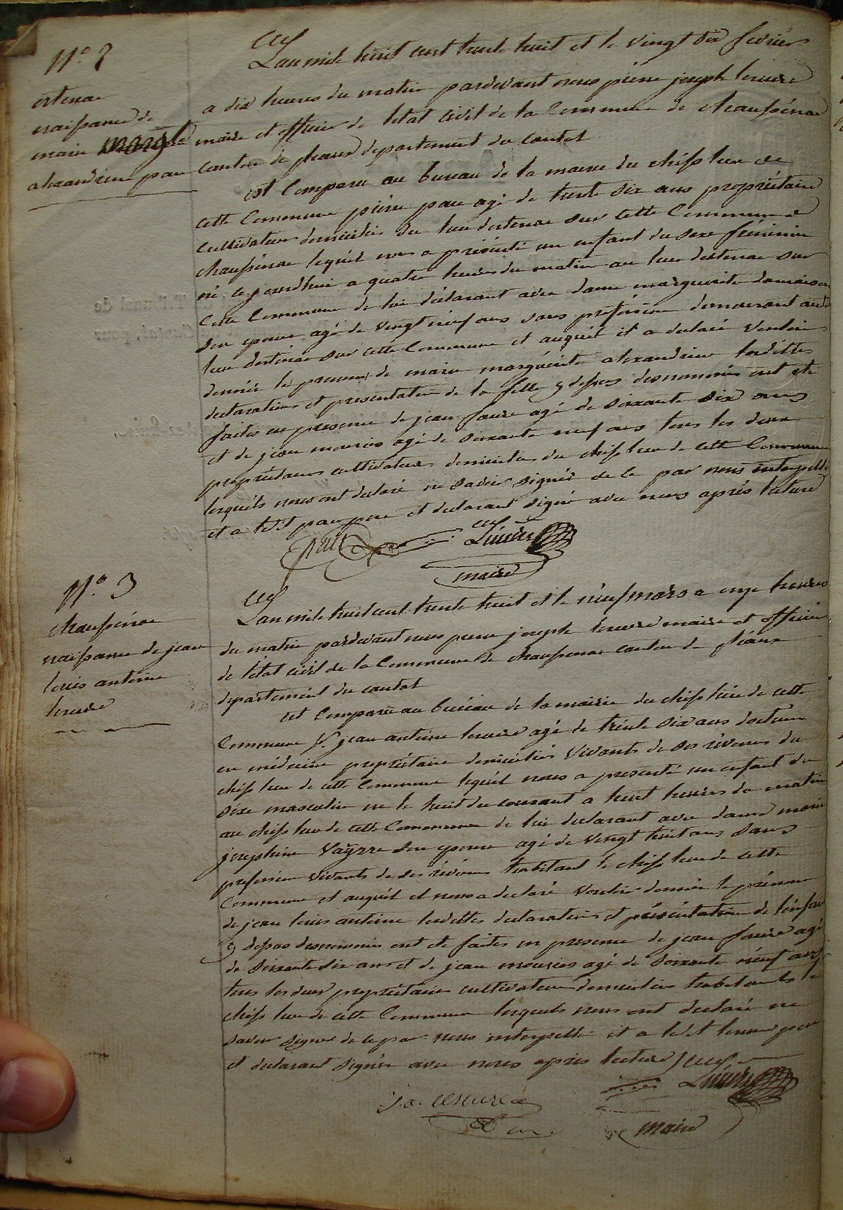 N.° 2
estenac
naissance de
marie margte
alexandrine pau
L'an mile huit cent trente huit et le vingt six fevrier
a dix heures du matin pardevant nous pierre joseph leuvre
maire et officier de létat civil de la Commune de chaussenac
canton de pleaux departement du cantal
est Comparu au bureau de la mairie du chef lieu de
cette Commune pierre pau agé de trente six ans propriétaire
cultivateur domicilié du lieu destenac sur cette Commune de
chaussenac lequel nous a présenté un enfant du sexe féminin
né cejourdhui a quatre heures du matin au lieu destenac sur
cette Commune de lui déclarant avec dame marguerite
son epouse agé de vingt neuf ans sans profession demeurant audit
lieu destenac sur cette Commune et auquel il a declaré Vouloir
donner le prenom de marie marguerite alexandrine lesdittes
declaration et présentation de la fille y dessus denommée ont eté
faites en presence de jean faure agé de soixante dix ans
et de jean mourios agé de soixante neuf ans tous les deux
propriétaires cultivateurs domiciliés du chef lieu de cette Commune
lesquels nous ont declaré ne savoir signer de ce par nous interpellés
et a ledit pau pere et declarant signé avec nous après lecture
pau
maire
N.° 3
chaussenac
naissance de jean
louis antoine
leuvre
L'an mile huit cent trente huit et le neuf mars a onze heures
du matin pardevant nous pierre joseph leuvre maire et officier
de létat civil de la Commune de chaussenac canton de pleaux
departement du cantal
est Comparu au bureau de la mairie du chef lieu de cette
Commune Sr. jean antoine leuvre agé de trente six ans docteur
en médecine propriétaire domiciliés Vivants de ses révenus du
chef lieu de cette Commune lequel nous a presenté un enfant du
sexe masculin né le huit du courant a huit heures du matin
au chef lieu de cette Commune de lui declarant avec dame marie
josephine Vayzre son epouse agé de vingt huit ans sans
profession vivants de ses révenus habitant le chef lieu de cette
Commune et auquel il nous a declaré Vouloir donner le prénom
de jean louis antoine lesdittes declaration et présentation de lénfant
y dessus denommé ont eté faites en presence de jean faure agé
de soixante dix ans et de jean mourios agé de soixante neuf ans
tous les deux propriétaires cultivateurs domiciliés habitants le
chef lieu de cette Commune lesquels nous ont declaré ne
savoir signer de ce par nous interpellé et a ledit leuvre pere
et declarant signé avec nous après lecture
maire